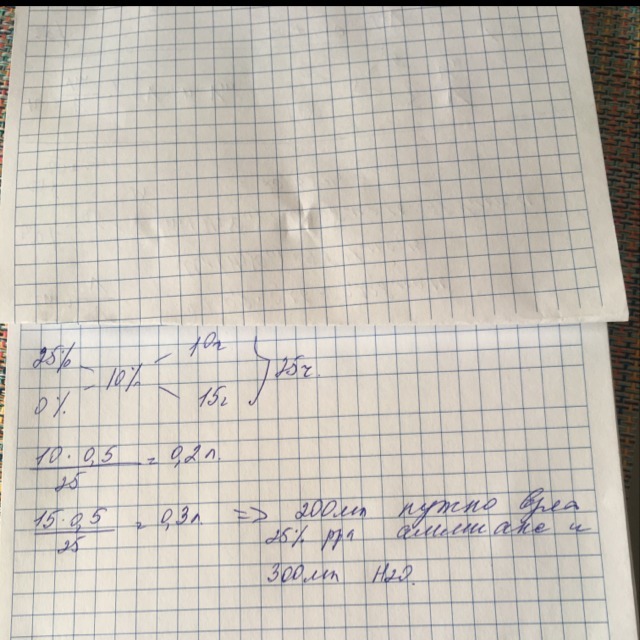 25% 10г
10% 25г
0% 15г
10 · 0,5 / 25 = 0,2 л
15 · 0,5 / 25 = 0,3 л => 200 мл нужно
25% р-ра аммиака и
300 мл H2O.